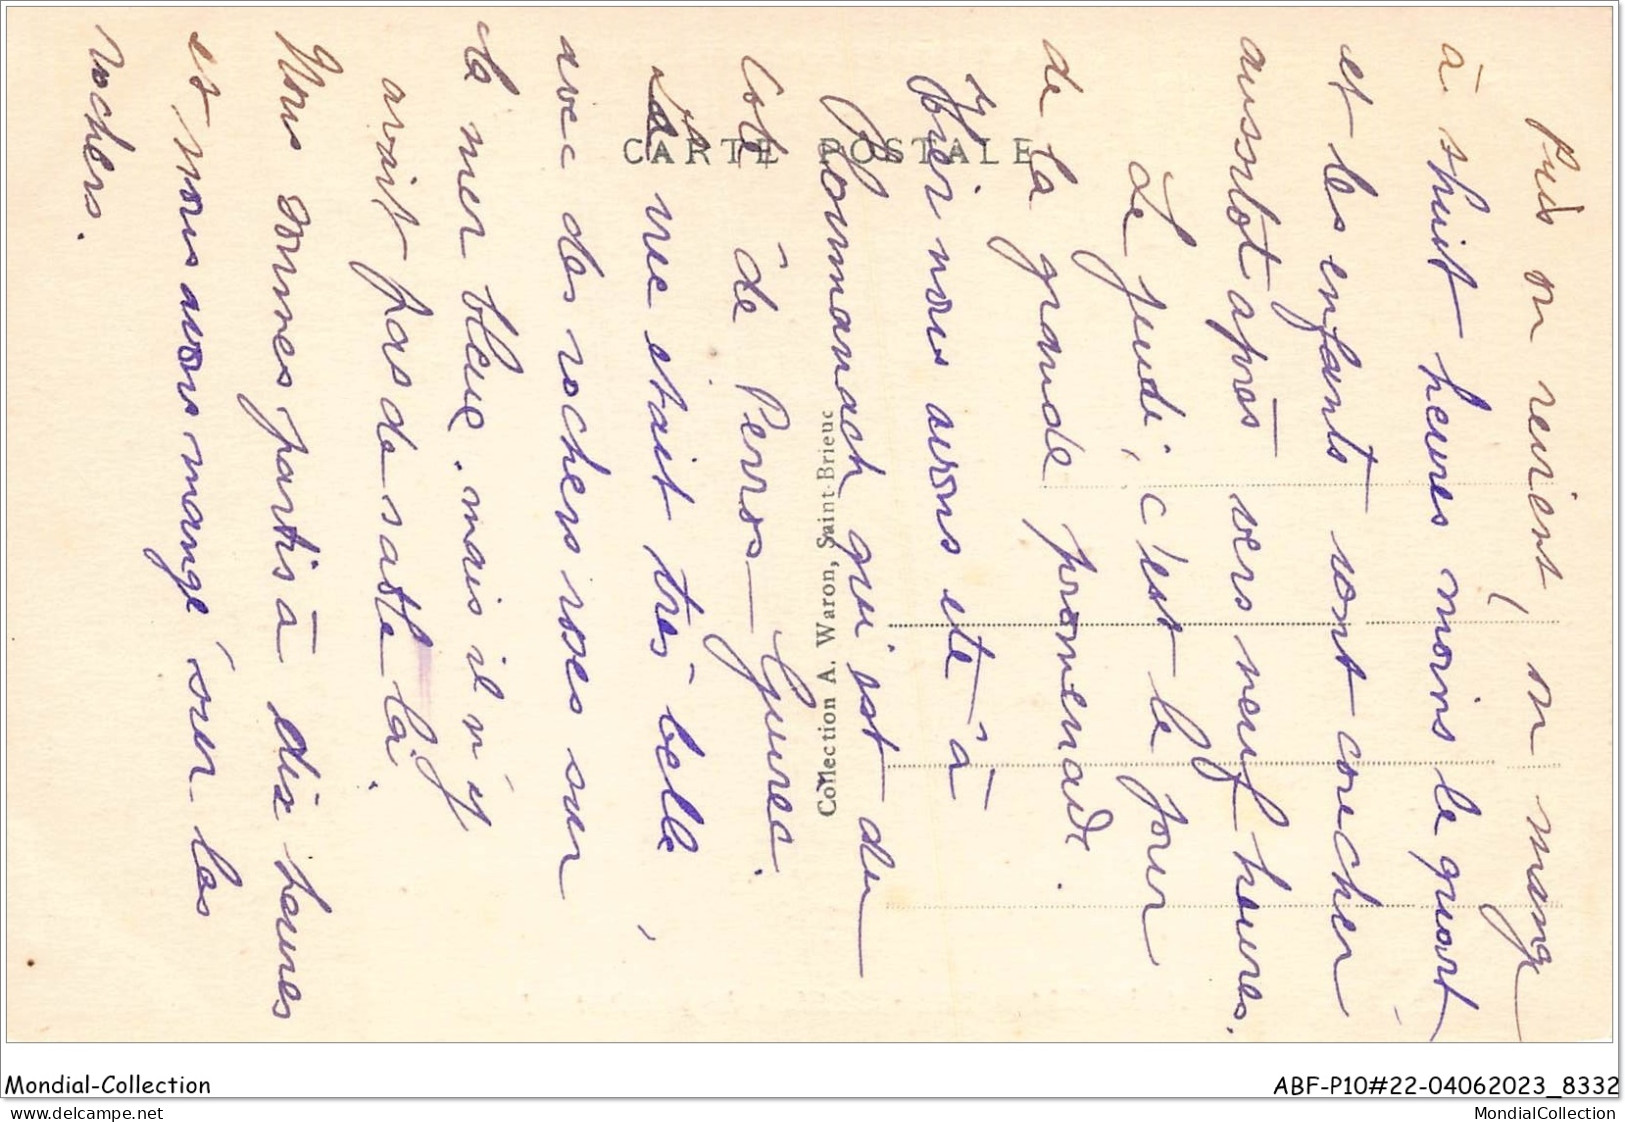 Puis on revient, on mange
à huit heures moins le quart
et les enfants vont coucher
aussitôt après vers neuf heures.
Le jeudi, c'est le jour
de la grande promenade.
Hier nous avons eté à
Ploumanach qui est du
Coté de Perros-Guirec.
La vue était très belle
avec des rochers roses sur
la mer bleue. mais il n'y
avait pas de sable là.
Nous sommes partis à dix heures
et nous avons mangé sur les
rochers.
CARTE POSTALE
Collection A. Waron, Saint-Brieuc
Mondial-Collection
ABF-P10#22-04062023_8332
www.delcampe.net
MondialCollection